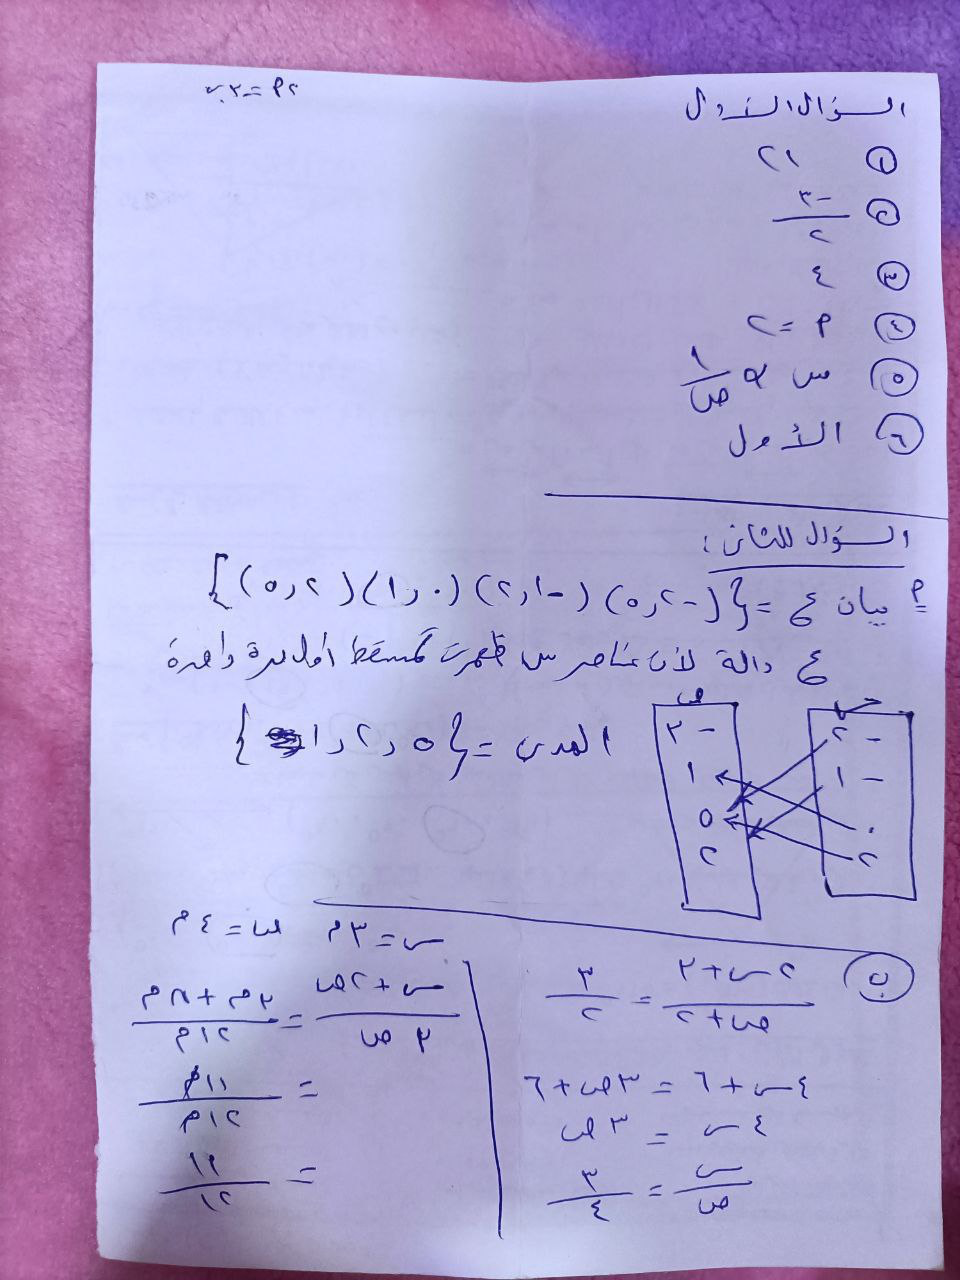 ٢م = ٢ب
السؤال الأول
١ ٢١
٢ -٣/٢
٣ ٤
٤ م = ٢
٥ س ∝ ١/ص
٦ الأول
السؤال الثاني :
م بيان ع = {(-٢,٥) (-١,٢) (٠,١) (٢,٥)}
ع دالة لأن عناصر س ظهرت كمسقط أول مرة واحدة
س ص
-٢ -٣
-١ ١
٠ ٥
٢ ٢
المدى = {٥,٢,١}
ب
٢س+٣/ص+٢ = ٣/٢
٤س+٦ = ٣ص+٦
٤س = ٣ص
س/ص = ٣/٤
س = ٣م ص = ٤م
س+٢ص/٣ص = ٣م+٨م/١٢م
= ١١م/١٢م
= ١١/١٢